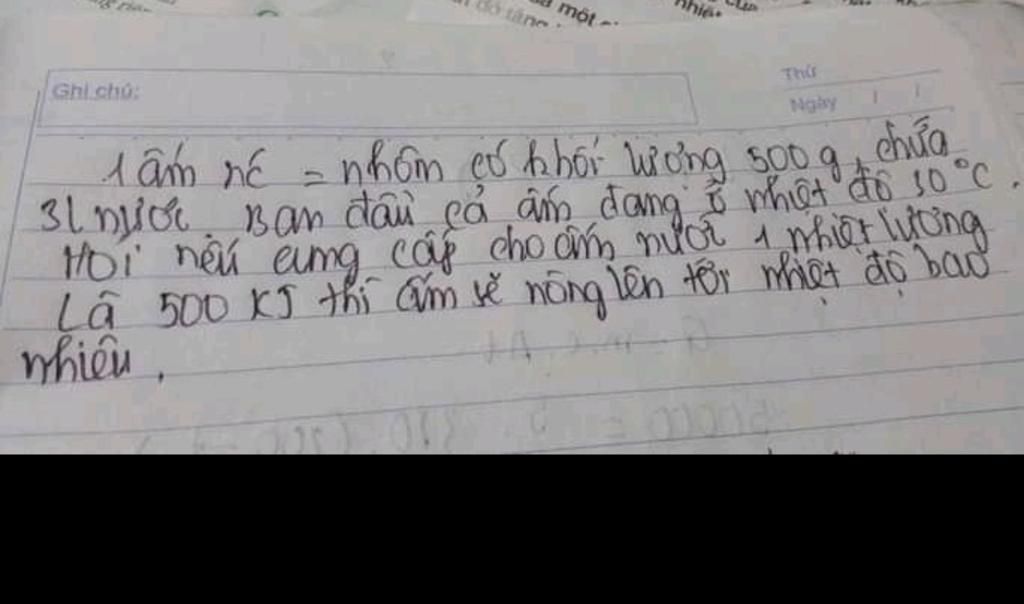 một
nhiên
Ghi chú:
Thứ
Ngày / /
1 ấm nc = nhôm có khối lượng 500g, chứa
3l nước. Ban đầu cả ấm đang ở nhiệt độ 30°C.
Hỏi nếu cung cấp cho ấm nước 1 nhiệt lượng
Là 500 KJ thì ấm sẽ nóng lên tới nhiệt độ bao
nhiêu.